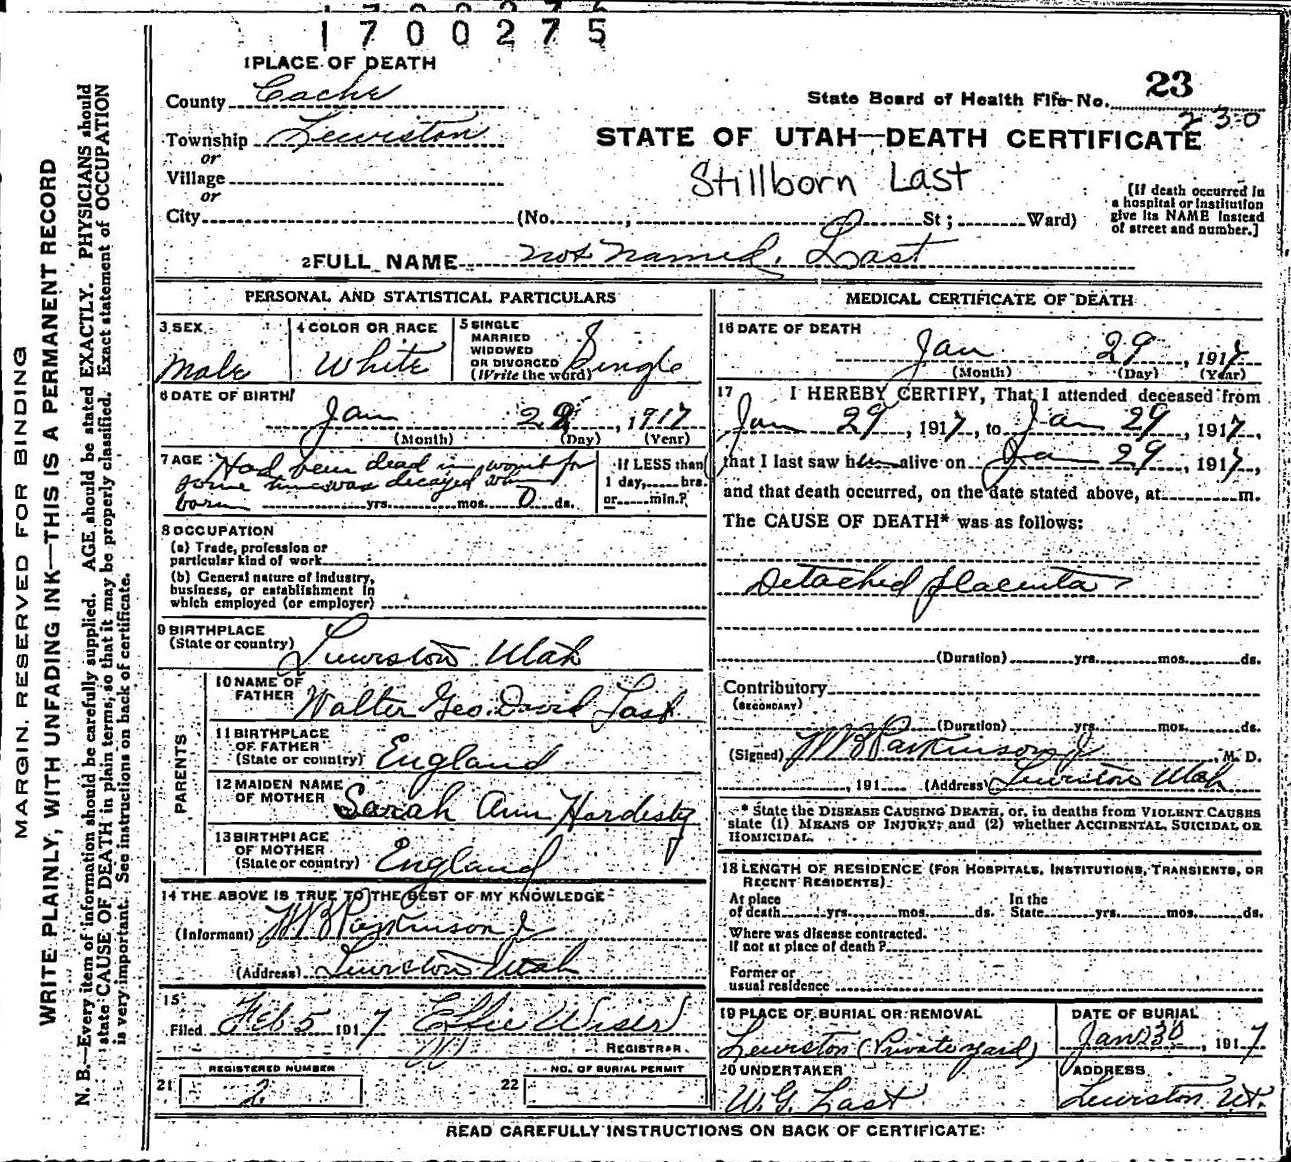 1700275
1 PLACE OF DEATH
County Cache
23
State Board of Health File No. 230
Township Lewiston
STATE OF UTAH—DEATH CERTIFICATE
or
Village
Stillborn Last
or
City (No. , St; Ward)
[If death occurred in
a hospital or institution
give its NAME instead
of street and number.]
2 FULL NAME not named. Last
PERSONAL AND STATISTICAL PARTICULARS
3 SEX
Male
4 COLOR OR RACE
White
5 SINGLE
MARRIED
WIDOWED
OR DIVORCED
(Write the word) Single
6 DATE OF BIRTH
Jan 29, 1917
(Month) (Day) (Year)
7 AGE Had been dead in womb for
some time was decayed when
born yrs. mos. 0 ds.
If LESS than
1 day, hrs.
or min.?
8 OCCUPATION
(a) Trade, profession or
particular kind of work
(b) General nature of industry,
business, or establishment in
which employed (or employer)
9 BIRTHPLACE
(State or country) Lewiston Utah
PARENTS
10 NAME OF
FATHER Walter Geo. David Last
11 BIRTHPLACE
OF FATHER
(State or country) England
12 MAIDEN NAME
OF MOTHER Sarah Ann Hardesty
13 BIRTHPLACE
OF MOTHER
(State or country) England
14 THE ABOVE IS TRUE TO THE BEST OF MY KNOWLEDGE
(Informant) W B Parkinson Jr
(Address) Lewiston Utah
15
Filed Feb 5 1917 Effie Wiser
REGISTRAR
REGISTERED NUMBER
21 2
NO. OF BURIAL PERMIT
22
MEDICAL CERTIFICATE OF DEATH
16 DATE OF DEATH
Jan 29, 1917
(Month) (Day) (Year)
17 I HEREBY CERTIFY, That I attended deceased from
Jan 29, 1917, to Jan 29, 1917,
that I last saw him alive on Jan 29, 1917,
and that death occurred, on the date stated above, at m.
The CAUSE OF DEATH* was as follows:
Detached placenta
(Duration) yrs. mos. ds.
Contributory
(SECONDARY)
(Duration) yrs. mos. ds.
(Signed) W B Parkinson Jr, M. D.
, 191 (Address) Lewiston Utah
* State the DISEASE CAUSING DEATH, or, in deaths from VIOLENT CAUSES
state (1) MEANS OF INJURY; and (2) whether ACCIDENTAL, SUICIDAL OR
HOMICIDAL.
18 LENGTH OF RESIDENCE (FOR HOSPITALS, INSTITUTIONS, TRANSIENTS, OR
RECENT RESIDENTS)
At place
of death yrs. mos. ds.
In the
State yrs. mos. ds.
Where was disease contracted.
If not at place of death?
Former or
usual residence
19 PLACE OF BURIAL OR REMOVAL
Lewiston (Private yard)
DATE OF BURIAL
Jan 30, 1917
20 UNDERTAKER
W. G. Last
ADDRESS
Lewiston Ut.
READ CAREFULLY INSTRUCTIONS ON BACK OF CERTIFICATE:
MARGIN RESERVED FOR BINDING
WRITE PLAINLY, WITH UNFADING INK—THIS IS A PERMANENT RECORD
N. B.—Every item of information should be carefully supplied. AGE should be stated EXACTLY. PHYSICIANS should
state CAUSE OF DEATH in plain terms, so that it may be properly classified. Exact statement of OCCUPATION
is very important. See instructions on back of certificate.